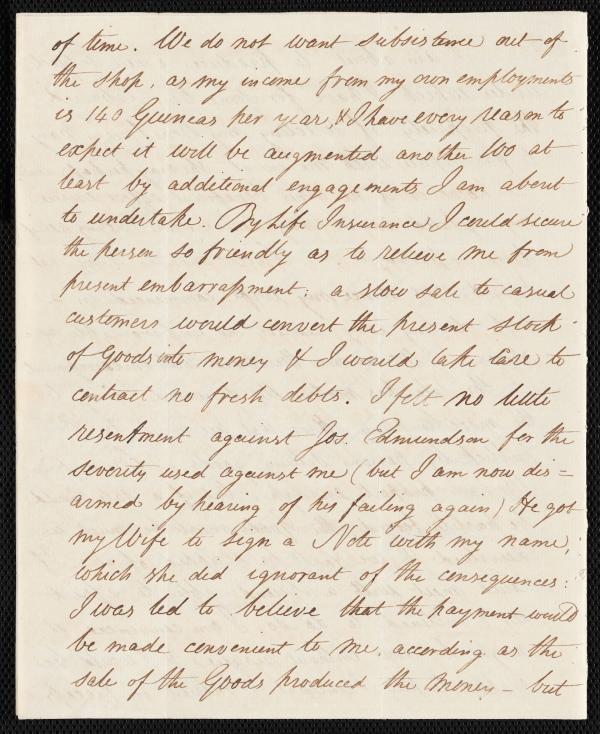 of time. We do not want subsistence out of
the shop, as my income from my own employments
is 140 Guineas per year, & I have every reason to
expect it will be augmented another 100 at
least by additional engagements I am about
to undertake. By Life Insurance I could secure
the person so friendly as to relieve me from
present embarrassment; a slow sale to casual
customers would convert the present stock
of Goods into money & I would take care to
contract no fresh debts. I felt no little
resentment against Jos. Edmundson for the
severity used against me (but I am now dis=
armed by hearing of his failing again) He got
my Wife to sign a Note with my name,
which she did ignorant of the consequences:
I was led to believe that the payment would
be made convenient to me, according as the
sale of the Goods produced the money - but